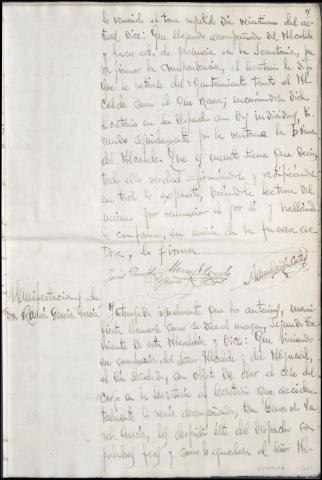 lo reunido el tan repetido día veintiuno del ac-
tual Dice: Que llegando acompañado del Alcalde
y hacer acto de presencia en la Secretaría, pa-
ra firmar la correspondencia, el Secretario le dijo
que se retirase del Ayuntamiento tanto el Al-
calde como el que narra, encontrándose dicho
Secretario en su despacho con dos individuos, ti-
rando seguidamente por la ventana la
del Alcalde. Que es cuanto tiene que decir,
todo ello verdad afirmándose y ratificándose
en todo lo expuesto, dándosele lectura del
mismo por renunciar a por sí y hallándo-
lo conforme, en unión de la fuerza ac-
tora, lo firma.
Manifestaciones de
Don Ramón García García
Interrogado igualmente que los anteriores, mani-
fiesta llamarse como se dice al margen, segundo Te-
niente de esta Alcaldía y Dice: Que viniendo
en compañía del Señor Alcalde y del
el día señalado, con objeto de dar el cese del
cargo a la Secretaría al Secretario que acciden-
talmente la venía desempeñando, Don
García, les despidió éste del despacho con
palabras feas y como le quedara al Señor Al-